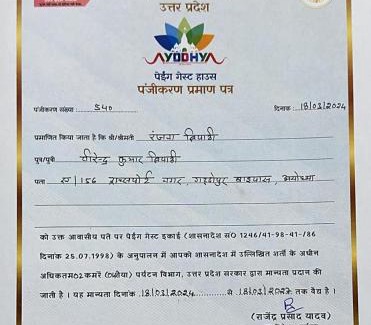 उत्तर प्रदेश
AYODHYA
पेईंग गेस्ट हाउस
पंजीकरण प्रमाण पत्र
पंजीकरण संख्या 540 दिनांक 18/03/2024
प्रमाणित किया जाता है कि श्री/श्रीमती रंजना त्रिपाठी
पुत्र/पुत्री वीरेन्द्र कुमार त्रिपाठी
पता ए/156 ट्रान्सपोर्ट नगर, बाइपास, अयोध्या
को उक्त आवासीय पते पर पेईंग गेस्ट इकाई (शासनादेश सं0 1246/41-98-41-/86
दिनांक 25.07.1998) के अनुपालन में आपको शासनादेश में उल्लिखित शर्तों के अधीन
अधिकतम02कमरें पर्यटन विभाग, उत्तर प्रदेश सरकार द्वारा मान्यता प्रदान की
जाती है। यह मान्यता दिनांक 18/03/2024 से 18/03/2027 तक वैद्य है।
(राजेंद्र प्रसाद यादव)